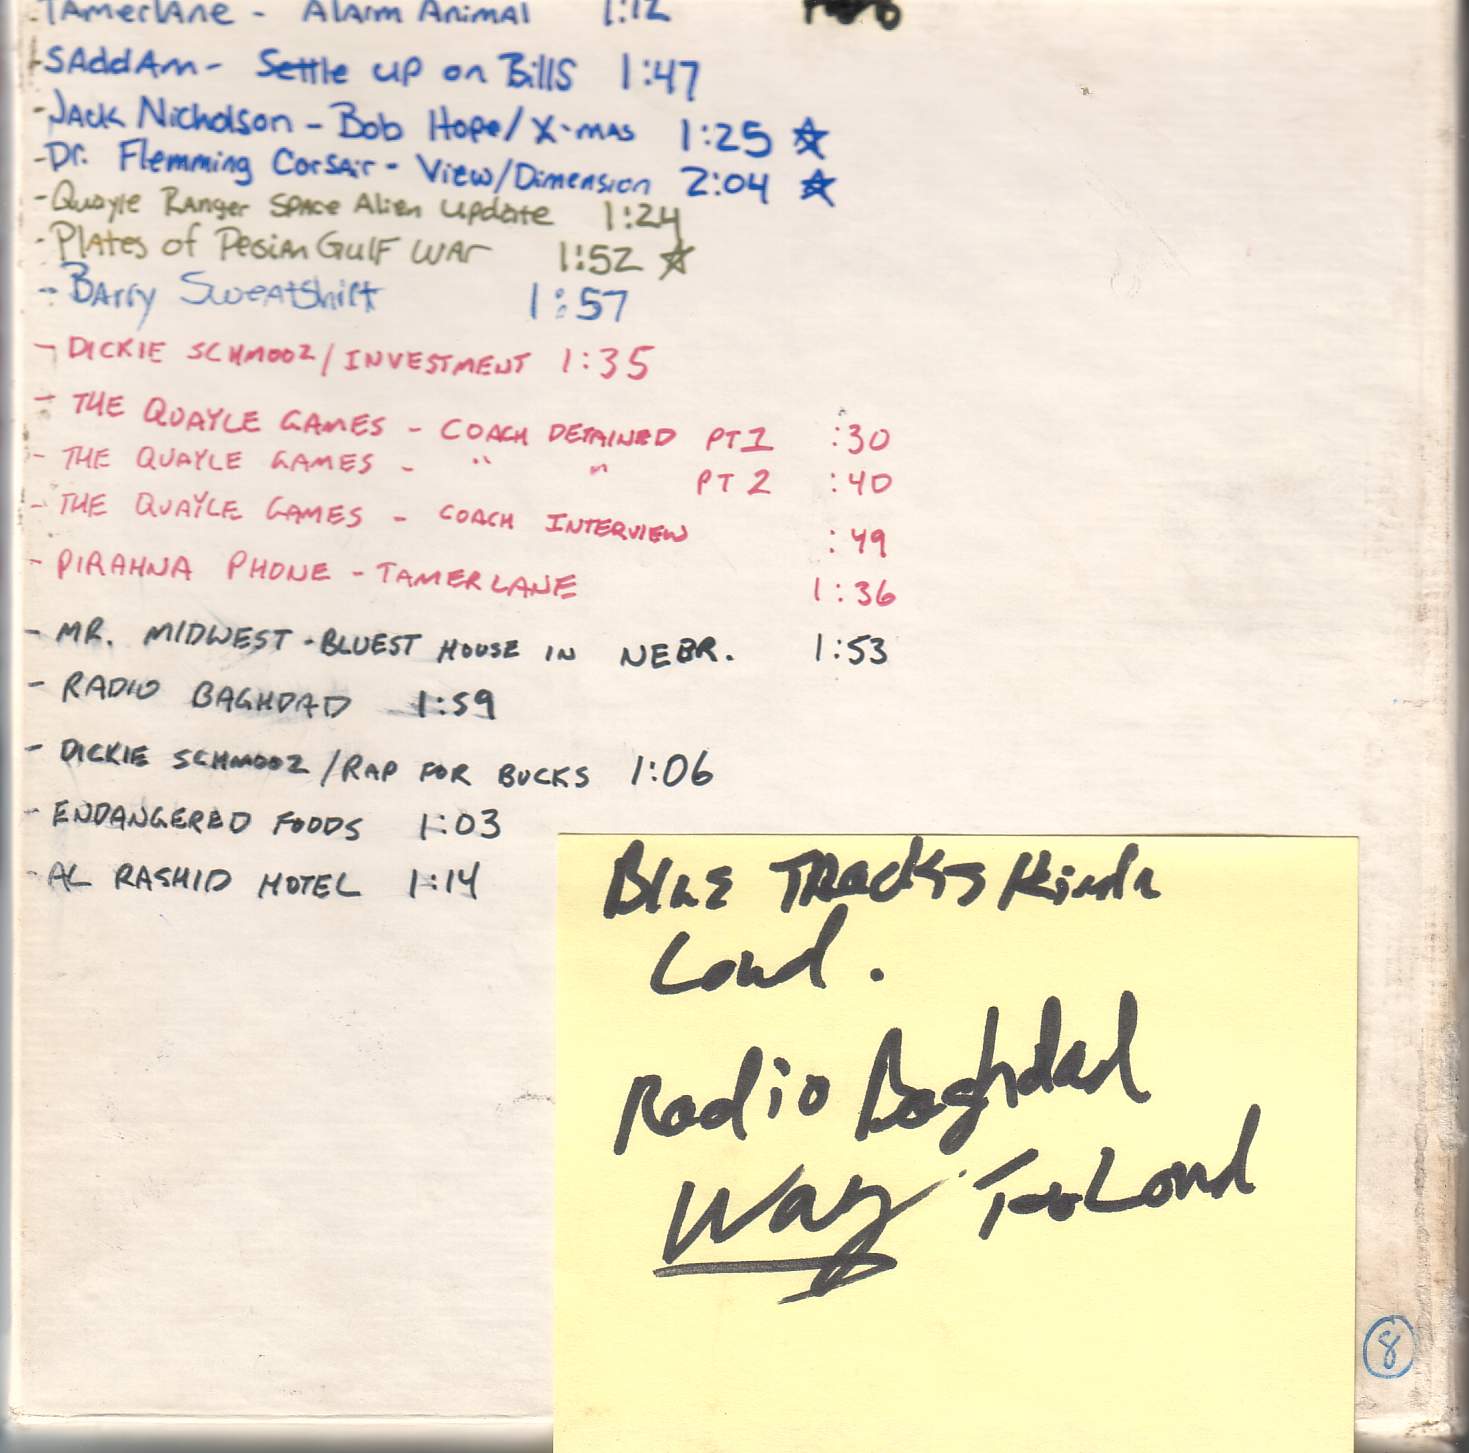 - Tamerlane - Alarm Animal 1:12
- SAddAm - Settle up on Bills 1:47
- Jack Nicholson - Bob Hope/X-mas 1:25 ☆
- Dr. Flemming Corsair - View/Dimension 2:04 ☆
- Quayle Ranger Space Alien Update 1:24
- Plates of Pesian Gulf War 1:52 ☆
- Barry Sweatshirt 1:57
- DICKIE SCHMOOZ/INVESTMENT 1:35
- THE QUAYLE GAMES - COACH DETAINED PT 1 :30
- THE QUAYLE GAMES - " " PT 2 :40
- THE QUAYLE GAMES - COACH INTERVIEW :49
- PIRAHNA PHONE - TAMERLANE 1:36
- MR. MIDWEST - BLUEST HOUSE IN NEBR. 1:53
- RADIO BAGHDAD 1:59
- DICKIE SCHMOOZ/RAP FOR BUCKS 1:06
- ENDANGERED FOODS 1:03
- AL RASHID HOTEL 1:14
Blue Tracks Kinda
Loud.
Radio Baghdad
Way Too Loud
8